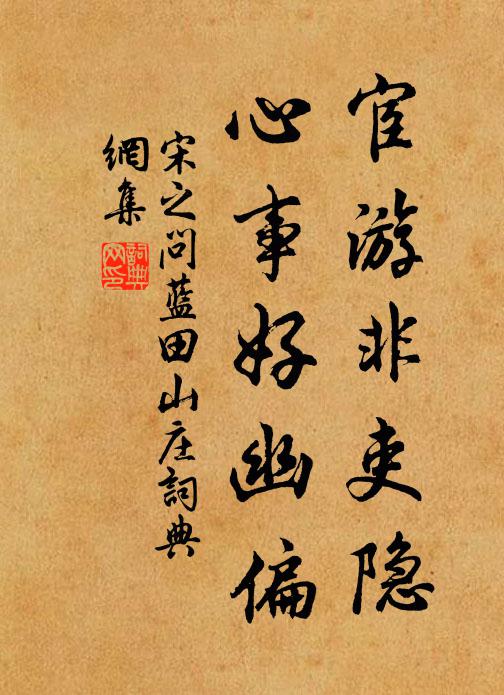 宦游非吏隐
心事好幽偏
宋之问蓝田山庄詞典
網集
詞典网印